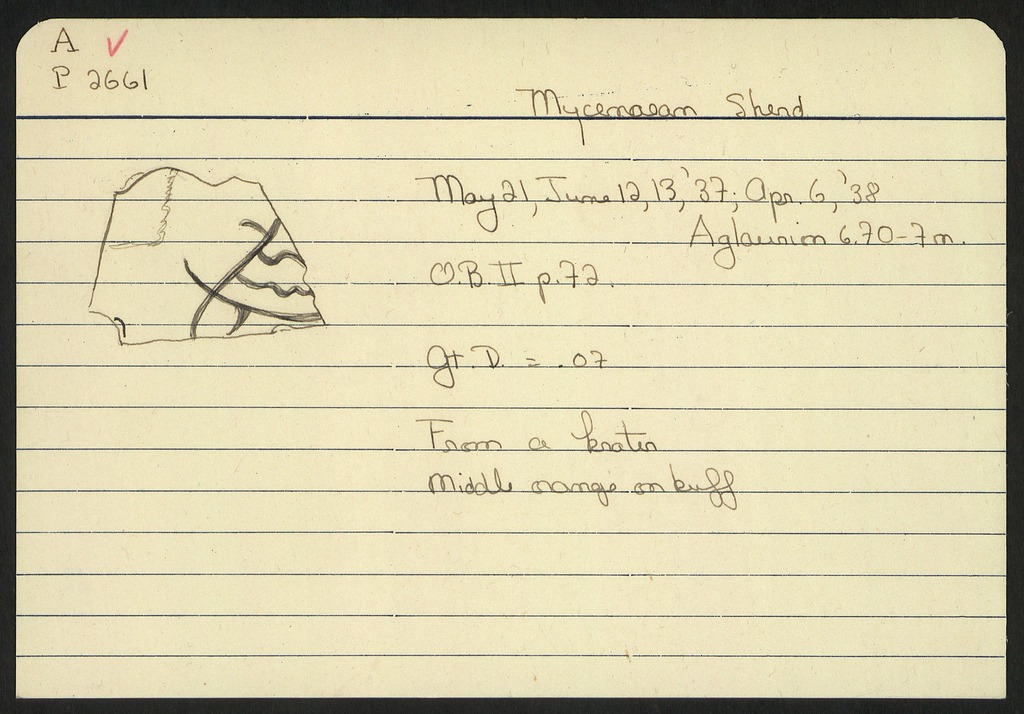 A ✓
P 2661
Mycenaean Sherd
May 21, June 12, 13, '37; Apr. 6, '38
Aglaurion 6.70-7 m.
O.B. II p. 72.
Gt. D. = .07
From a krater
Middle orange on buff